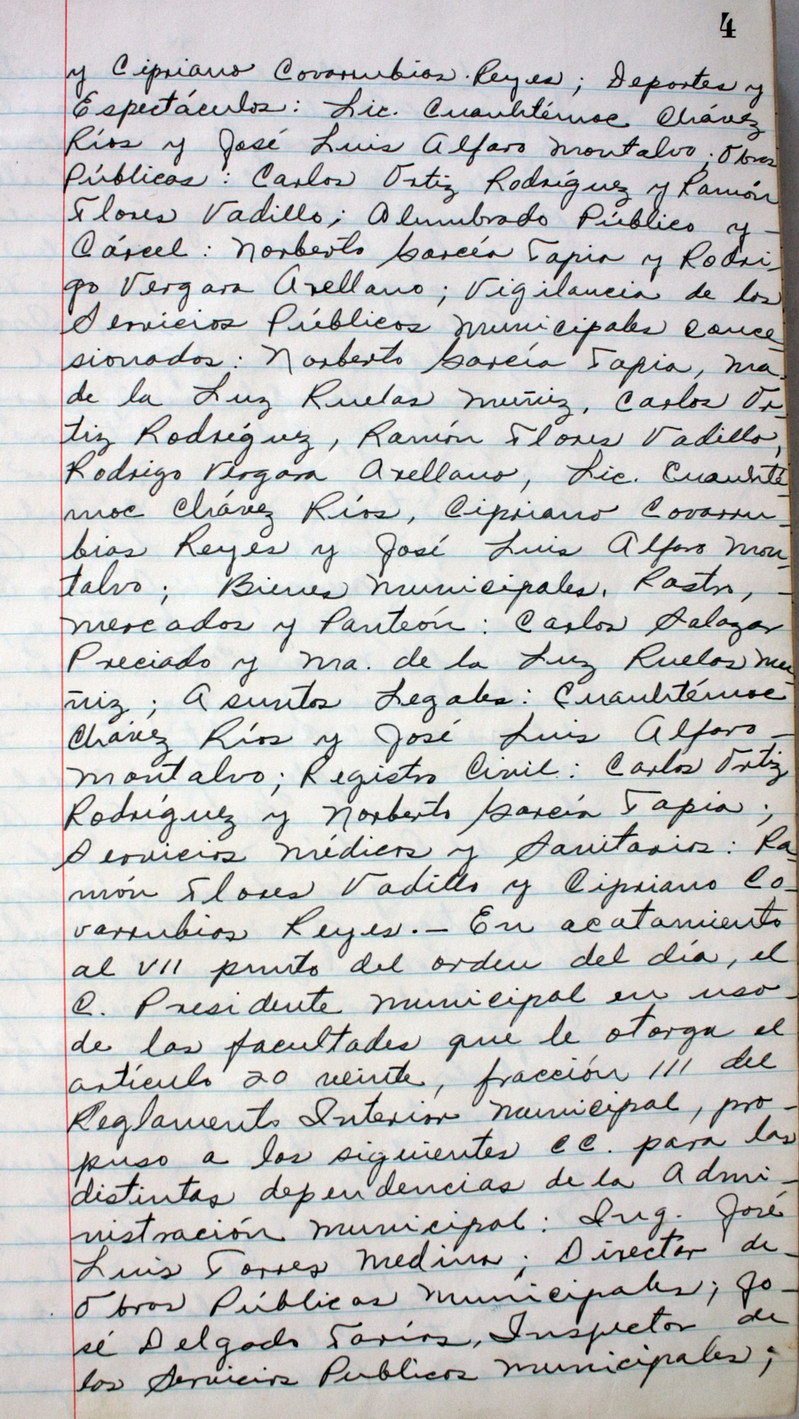 4
y Cipriano Covarrubias Reyes; Deportes y
Espectáculos: Lic. Cuauhtémoc Chávez
Ríos y José Luis Alfaro Montalvo; Obras
Públicas: Carlos Ortiz Rodríguez y Ramón
Flores Vadillo; Alumbrado Público y -
Cárcel: Norberto García Tapia y Rodri-
go Vergara Arellano; Vigilancia de los
Servicios Públicos Municipales conce-
sionados: Norberto García Tapia, Ma.
de la Luz Ruelas Muñiz, Carlos Or-
tiz Rodríguez, Ramón Flores Vadillo,
Rodrigo Vergara Arellano, Lic. Cuauhté-
moc Chávez Ríos, Cipriano Covarru-
bias Reyes y José Luis Alfaro Mon-
talvo; Bienes Municipales, Rastro, -
Mercados y Panteón: Carlos Salazar
Preciado y Ma. de la Luz Ruelas Mu-
ñiz; Asuntos Legales: Cuauhtémoc
Chávez Ríos y José Luis Alfaro -
Montalvo; Registro Civil: Carlos Ortiz
Rodríguez y Norberto García Tapia;
Servicios Médicos y Sanitarios: Ra-
món Flores Vadillo y Cipriano Co-
varrubias Reyes.- En acatamiento
al VII punto del orden del día, el
C. Presidente Municipal en uso -
de las facultades que le otorga el
artículo 20 veinte, fracción III del
Reglamento Interior Municipal, pro-
puso a los siguientes CC. para las
distintas dependencias de la Admi-
nistración Municipal: Ing. José
Luis Torres Medina; Director de -
Obras Públicas Municipales; Jo-
sé Delgado Farías, Inspector de
los Servicios Publicos Municipales;